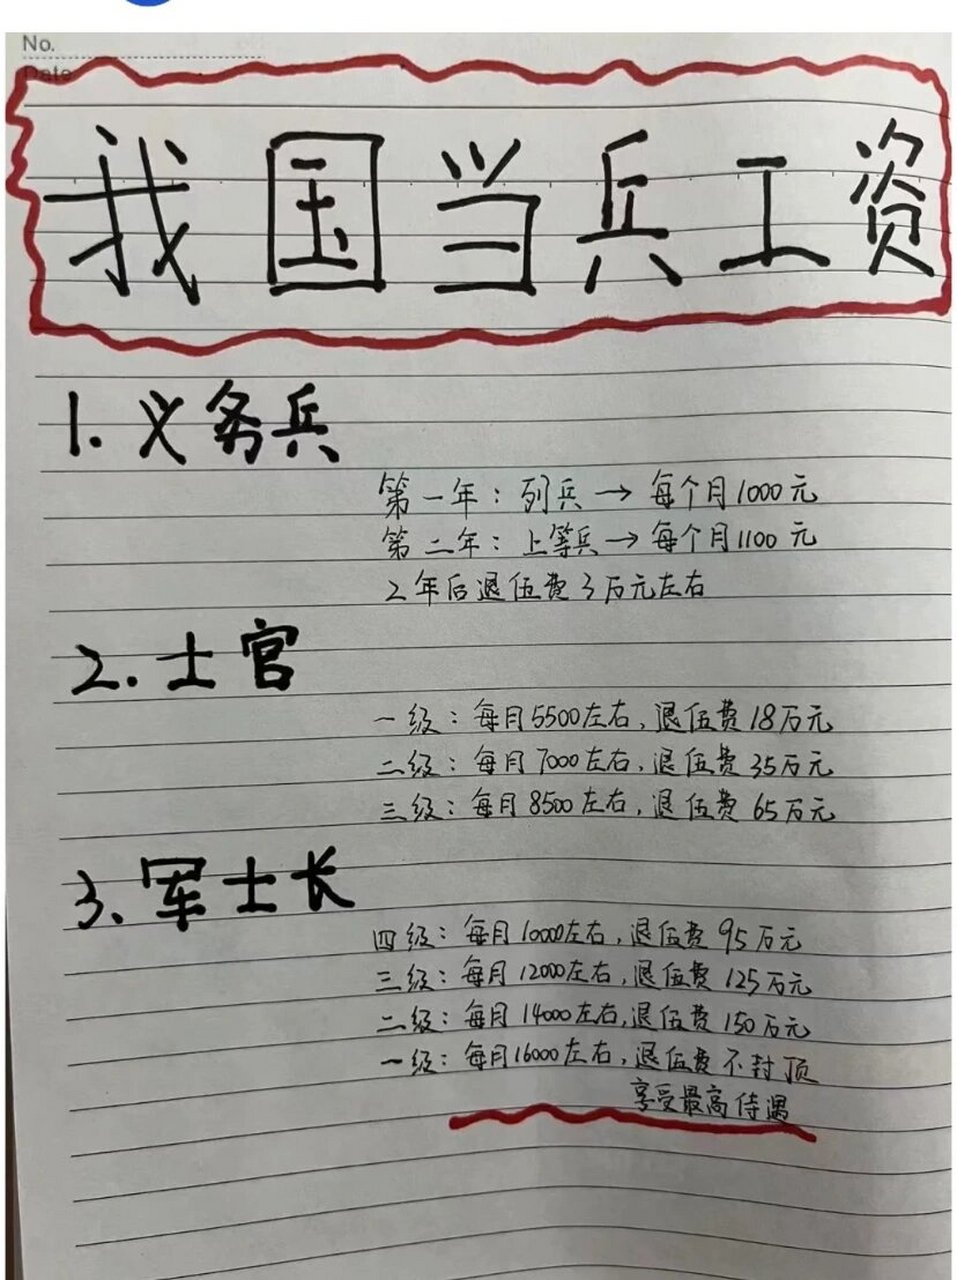 No.
Date
我国当兵工资
1. 义务兵
第一年：列兵→每个月1000元
第二年：上等兵→每个月1100元
2年后退伍费3万元左右
2. 士官
一级：每月5500左右，退伍费18万元
二级：每月7000左右，退伍费35万元
三级：每月8500左右，退伍费65万元
3. 军士长
四级：每月10000左右，退伍费95万元
三级：每月12000左右，退伍费125万元
二级：每月14000左右，退伍费150万元
一级：每月16000左右，退伍费不封顶
享受最高待遇